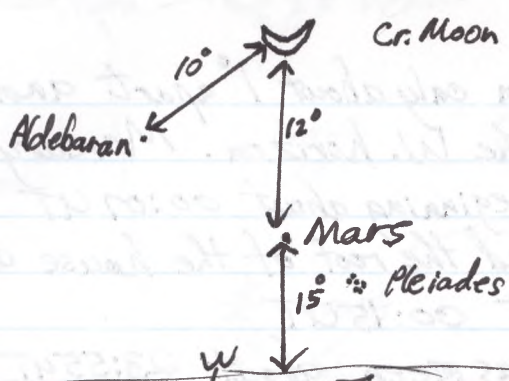 Cr. Moon
10°
Aldebaran
12°
Mars
15°
Pleiades
W